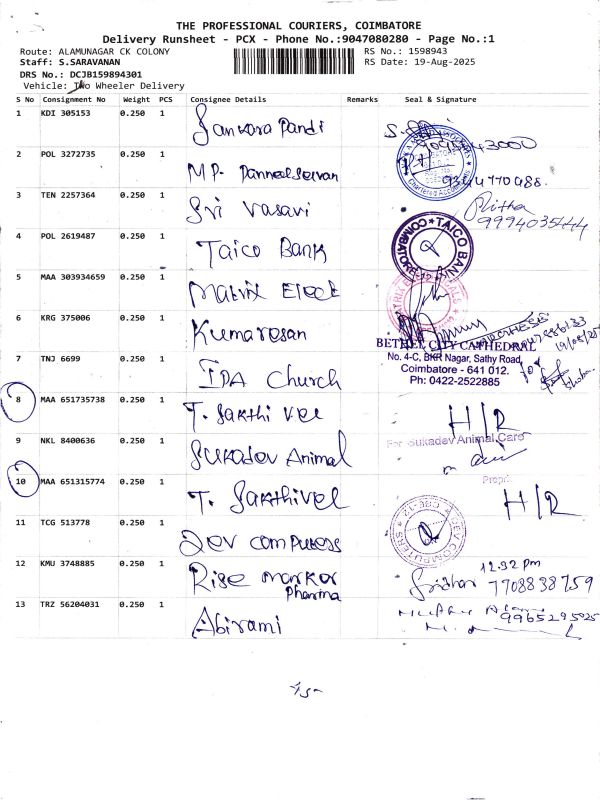 THE PROFESSIONAL COURIERS, COIMBATORE
Delivery Runsheet - PCX - Phone No.:9047080280 - Page No.:1
Route: ALAMUNAGAR CK COLONY RS No.: 1598943
Staff: S.SARAVANAN RS Date: 19-Aug-2025
DRS No.: DCJB159894301
Vehicle: Two Wheeler Delivery
S No Consignment No Weight PCS Consignee Details Remarks Seal & Signature
1 KDI 305153 0.250 1 Sankara Pandi
2 POL 3272735 0.250 1 MP. Panneelservan
9344770488.
3 TEN 2257364 0.250 1 Sri Vasavi
9994035444
4 POL 2619487 0.250 1 Taico Bank
TAICO BANK COIMBATORE
5 MAA 303934659 0.250 1 Matrix Elect
6 KRG 375006 0.250 1 Kumaresan
19/08/25
BETHEL CITY CATHEDRAL
No. 4-C, BKR Nagar, Sathy Road,
Coimbatore - 641 012.
Ph: 0422-2522885
7 TNJ 6699 0.250 1 IPA Church
8 MAA 651735738 0.250 1 T. Sakthi Vel H/R
9 NKL 8400636 0.250 1 Sukadev Animal
For Sukadev Animal Care
10 MAA 651315774 0.250 1 T. Sakthivel H/R
11 TCG 513778 0.250 1 Dev computers
DEV COMPUTERS
12 KMU 3748885 0.250 1 Rise Marker Pharma
12.32 pm
Sridhar 7708838759
13 TRZ 56204031 0.250 1 Abirami
9965295925